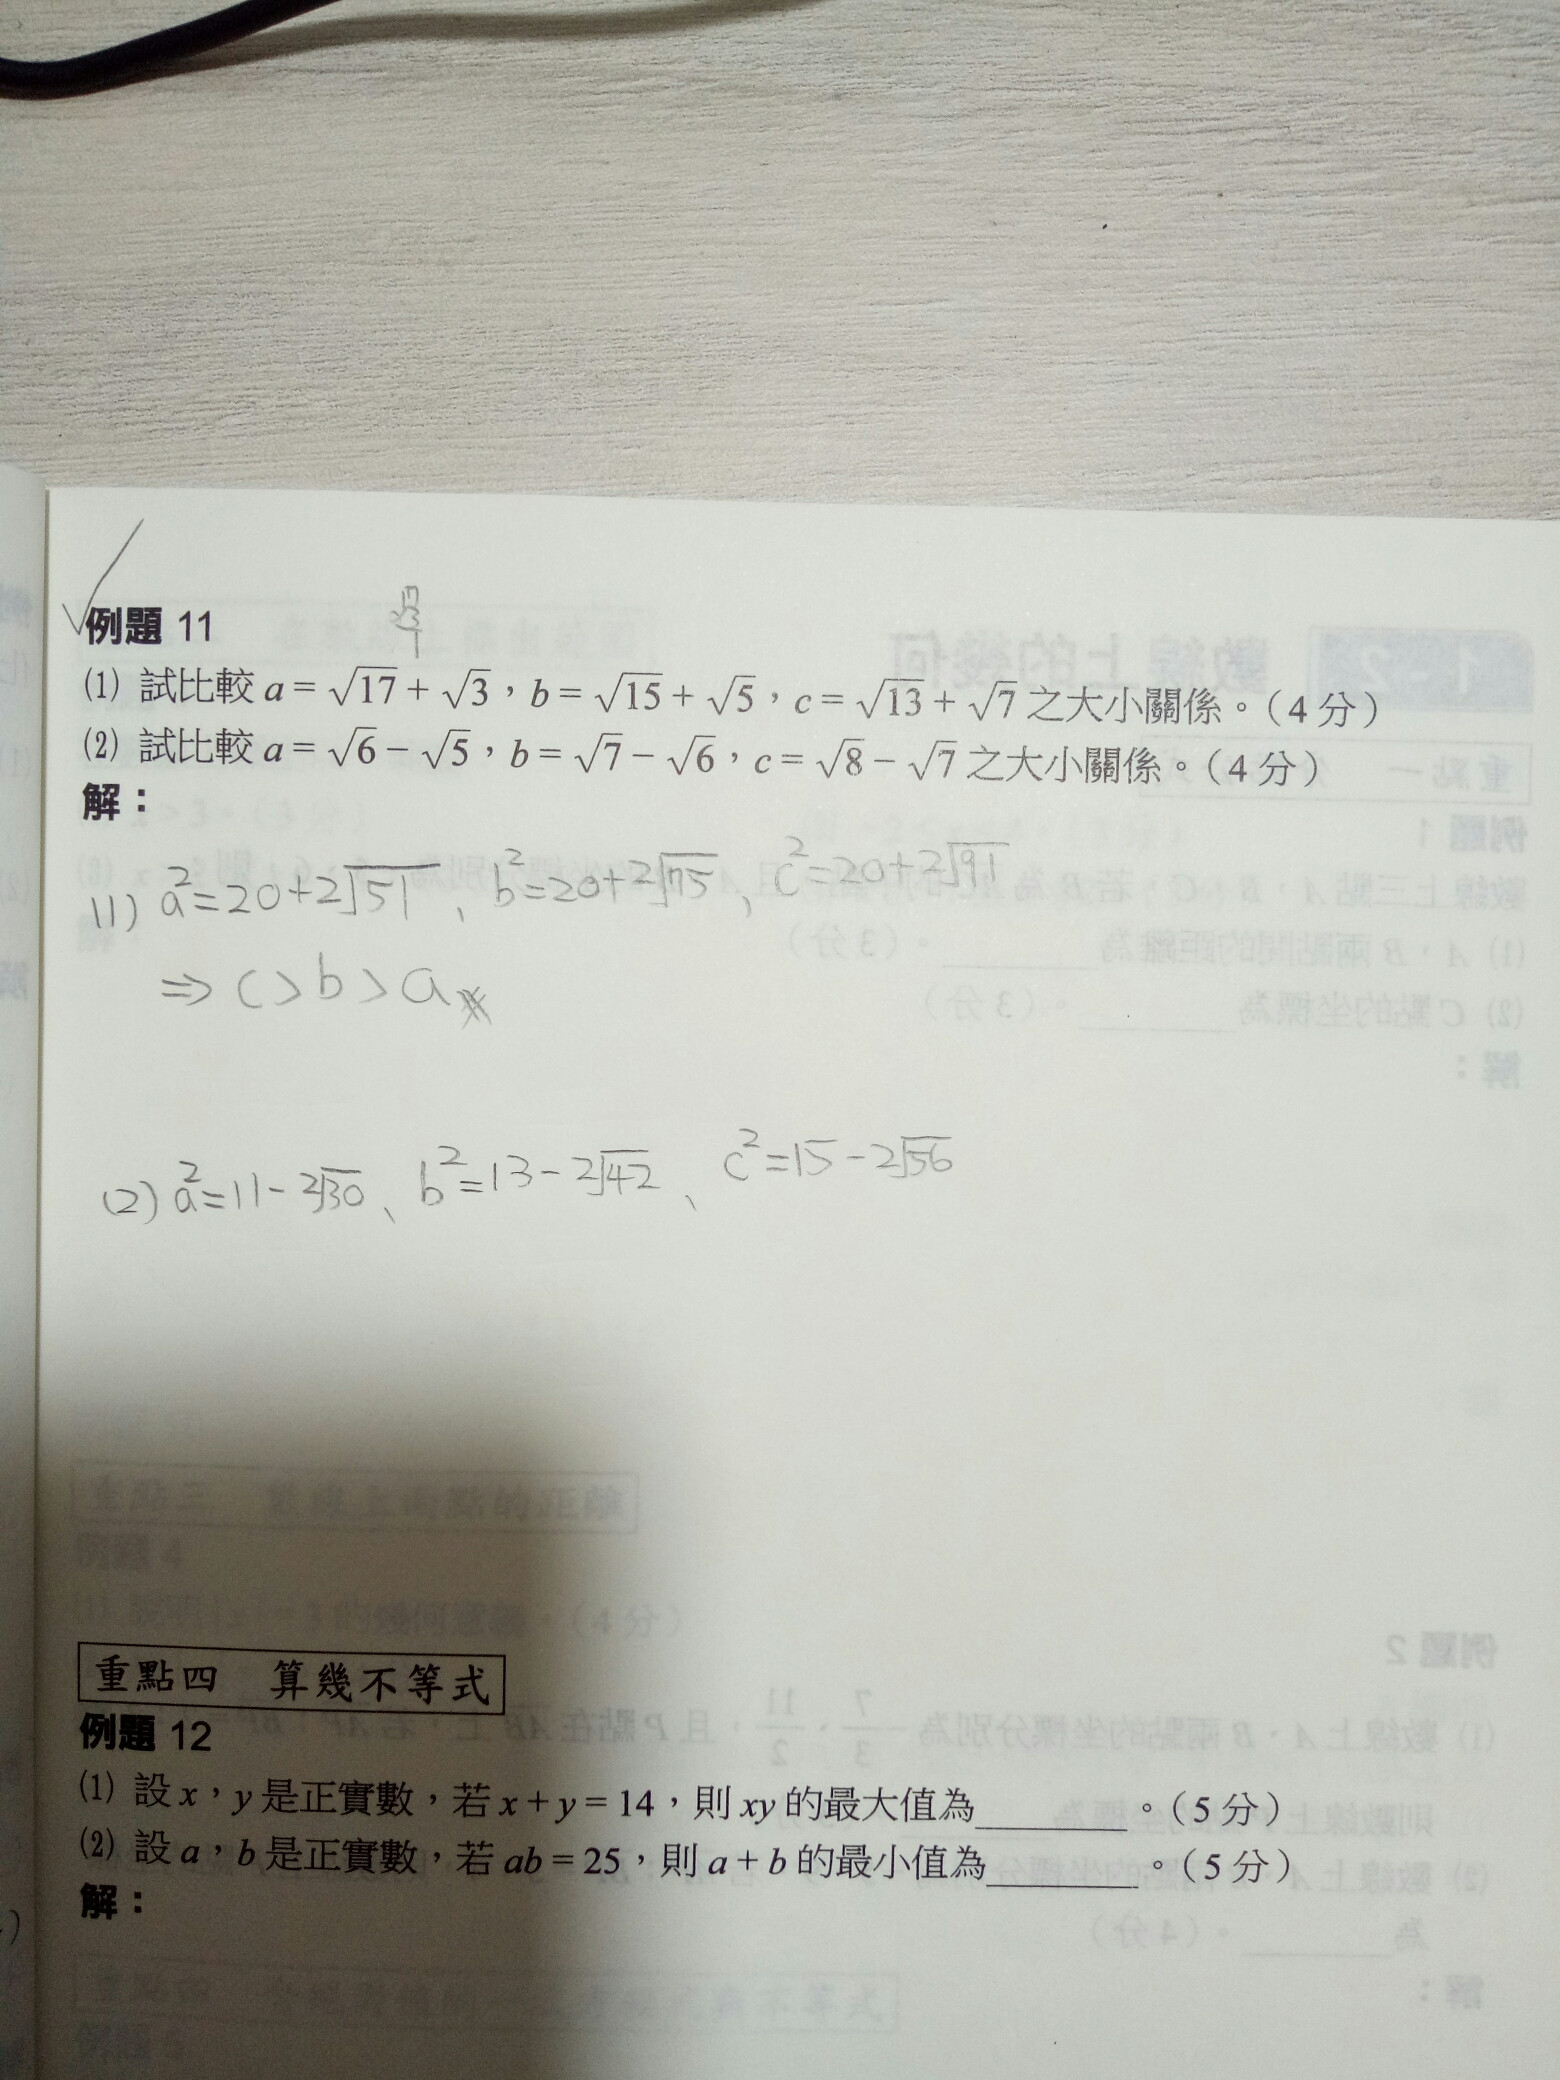 例題 11
(1) 試比較 a = √17 + √3，b = √15 + √5，c = √13 + √7 之大小關係。（4 分）
(2) 試比較 a = √6 − √5，b = √7 − √6，c = √8 − √7 之大小關係。（4 分）
解：
(1) a²=20+2√51、b²=20+2√75、c²=20+2√91
⇒ c>b>a
(2) a²=11-2√30、b²=13-2√42、c²=15-2√56
重點四 算幾不等式
例題 12
(1) 設 x，y 是正實數，若 x + y = 14，則 xy 的最大值為______。（5 分）
(2) 設 a，b 是正實數，若 ab = 25，則 a + b 的最小值為______。（5 分）
解：